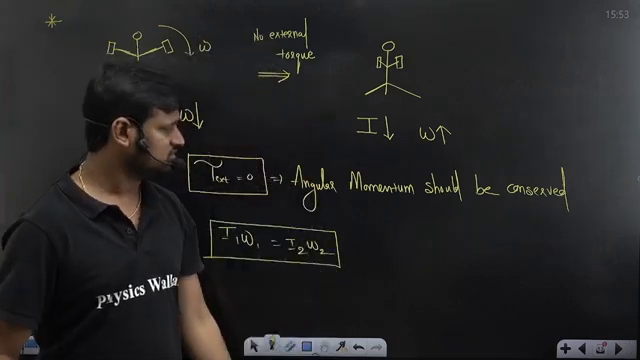 15:53
*
ω
No external
torque
⇒
ω↓
I↓ ω↑
τext = 0 ⇒ Angular Momentum should be conserved
I₁ω₁ = I₂ω₂
Physics Walla